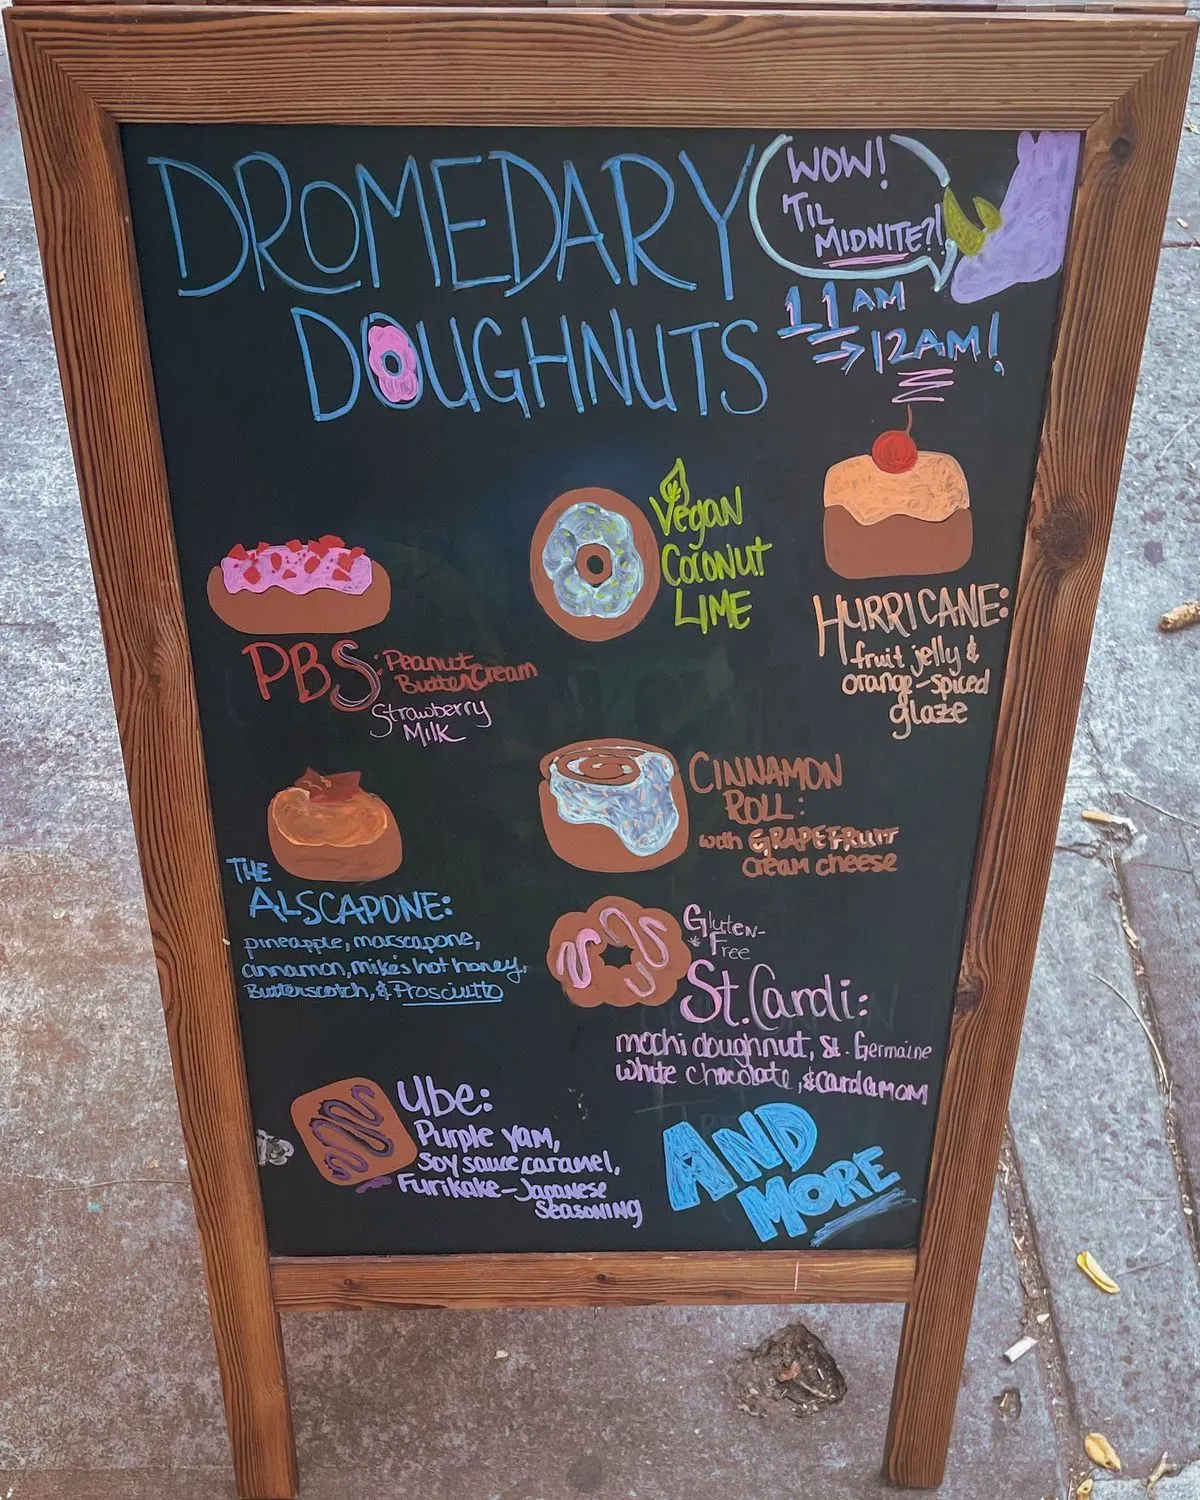 DROMEDARY
DOUGHNUTS
WOW!
'TIL
MIDNITE?!
11 AM
→12AM!
PBS: Peanut
Butter Cream
Strawberry
Milk
Vegan
Coconut
LIME
HURRICANE:
fruit jelly &
orange-spiced
glaze
THE
ALSCAPONE:
pineapple, marscapone,
cinnamon, mike's hot honey,
Butterscotch, & Prosciutto
CINNAMON
ROLL:
with GRAPEFRUIT
cream cheese
Gluten-
*Free
St. Cardi:
mochi doughnut, St. Germaine
white chocolate, & cardamom
Ube:
Purple yam,
soy sauce caramel,
Furikake-Japanese
Seasoning
AND
MORE